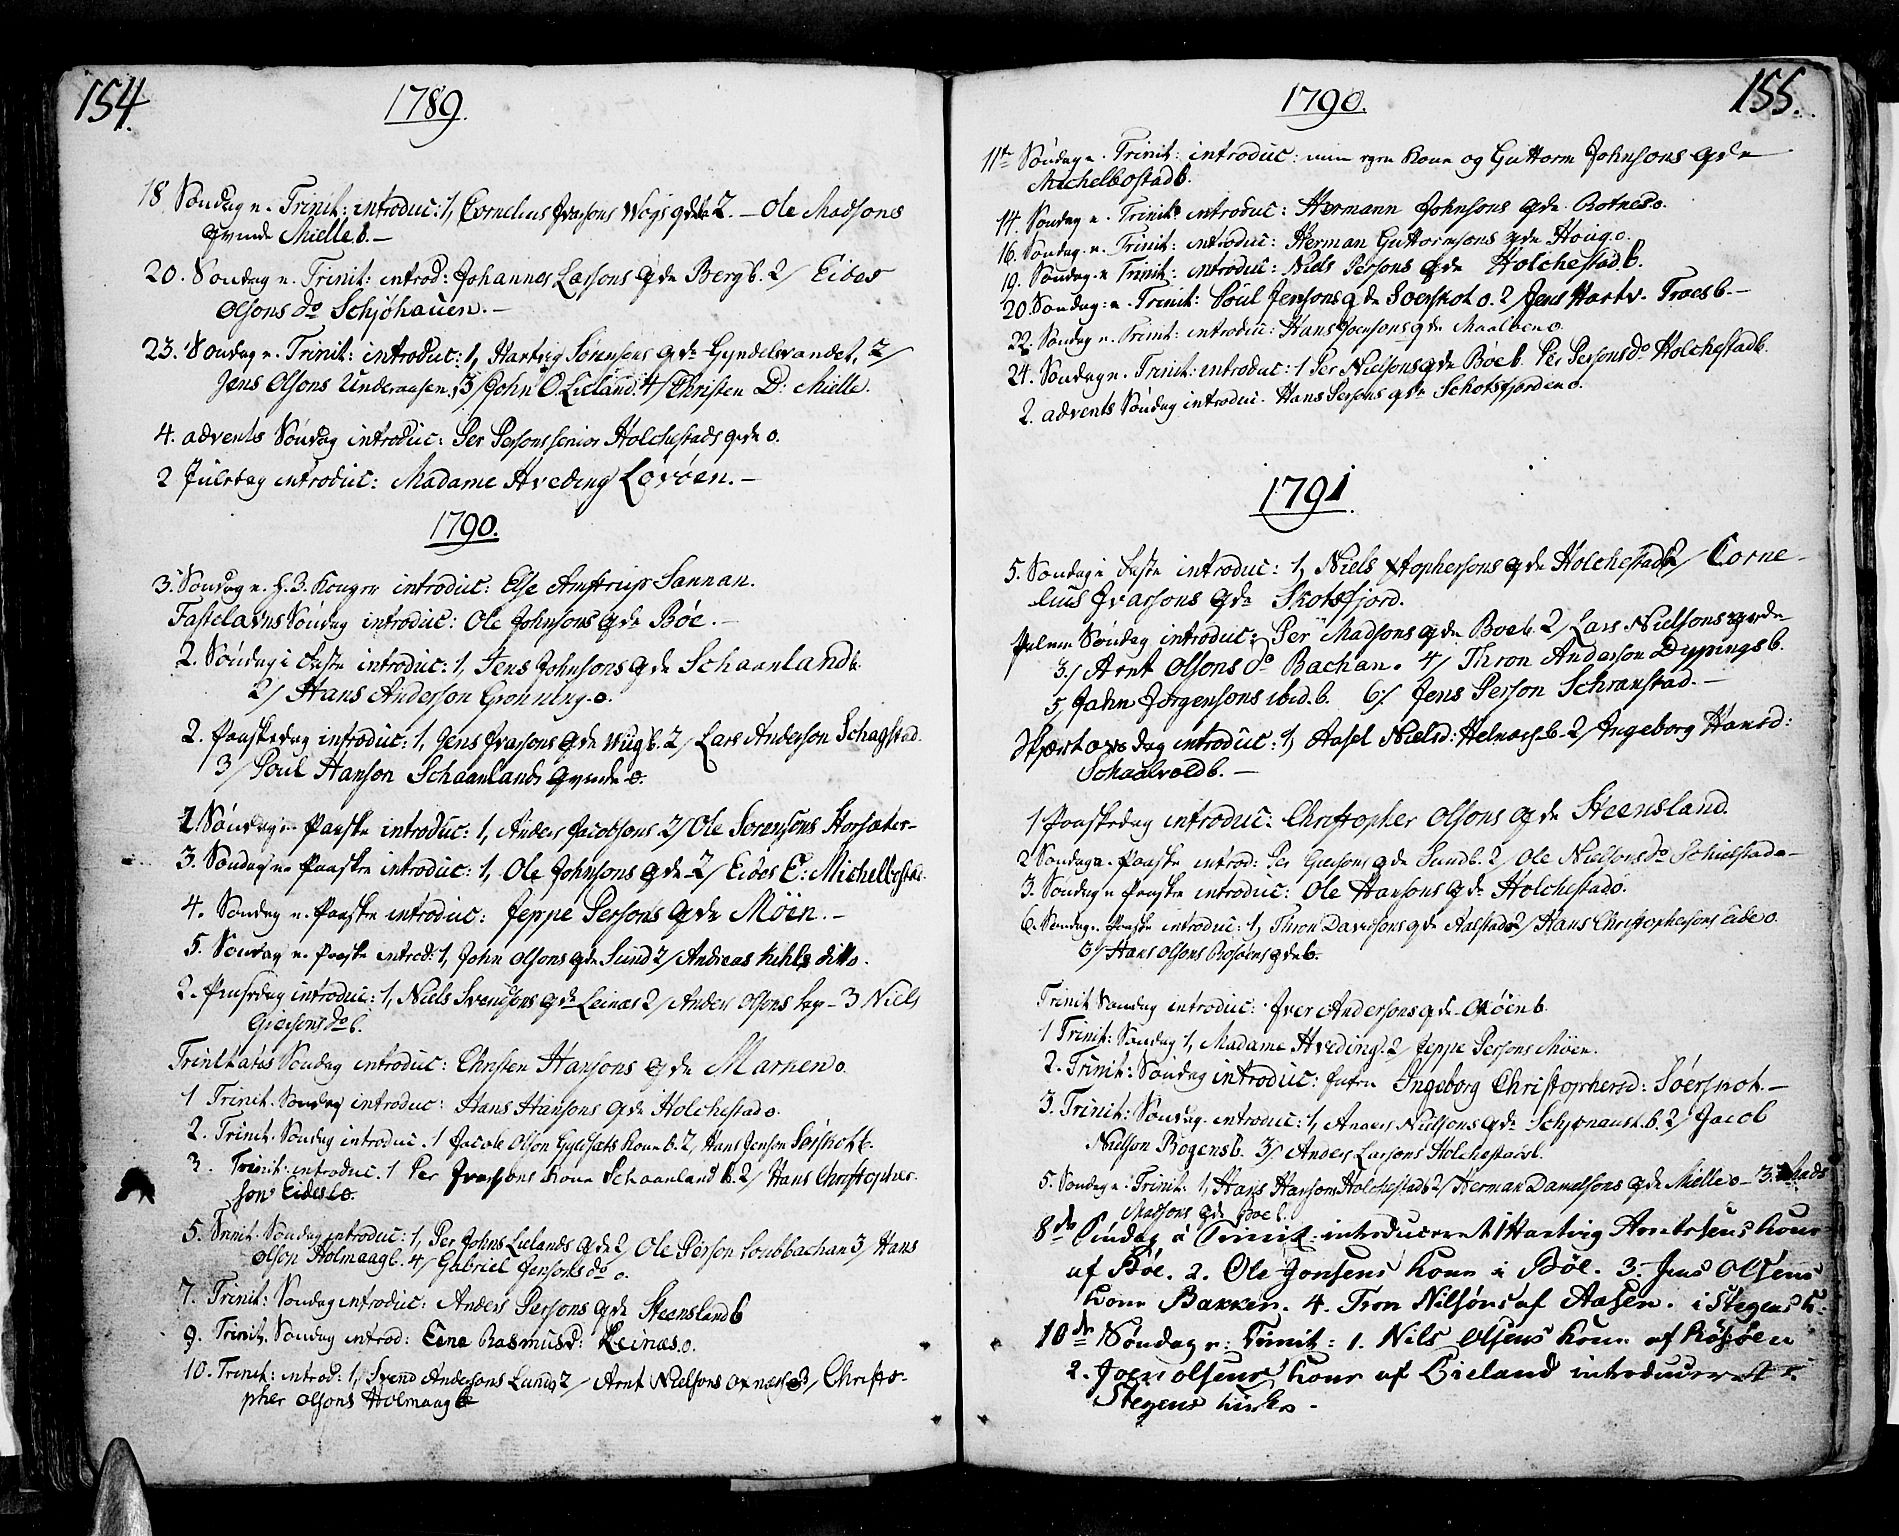 154.
1789.
18 Søndag n. Trinit: introduc: 1, Cornelius Ivarsons Wogs qvde 2. – Ole Madsons
qvinde Mielle b. –
20. Søndag n. Trinit: introd: Johannes Larsons qvde Berg b. 2/
Olsons do Schjøhauen. –
23. Søndag n. Trinit: introduc: 1, Hartvig Sørensons qvde Gyndelvandet, 2/
Jens Olsons Underaasen, 3/ John O. Lieland. 4/ Christen D: Mielle.
4. advents Søndag introduc: Per Persons senior Holchestads qvde o.
2 Juledag introduc: Madame Hveding Lovøen. –
1790.
3. Søndag n. H. 3. Konger introduc: Else Amstrup Sannan.
Fastelavns Søndag introduc: Ole Johnsons qvde Bøe. –
2. Søndag i Faste introduc: 1, Jens Johnsons qvde Schaanland b.
2/ Hans Anderson Grønning. o.
2. Paaskedag introduc: 1, Jens Ivarsons qvde Wug b. 2/ Lars Anderson Schagstad.
3/ Poul Hanson Schaanlands qvinde o.
1 Søndag n. Paaske introduc: 1, Anders Jacobsons 2/ Ole Sørensons Storsæter –
3. Søndag n. Paaske introduc: 1, Ole Johnsons qvde – 2/ E: Michelbostad.
4. Søndag n. Paaske introduc: Jeppe Persons qvde Möen. –
5. Søndag n. Paaske introd: 1, John Olsons qvde Sund 2/ Andreas ditto.
2. Pinsedag introduc: 1, Niels Svensons qvde Leinæs 2/ Anders Olsons – 3 Niels
do b.
Trinitatis Søndag introduc: Christen Hansons qvde Marnen o.
1 Trinit. Søndag introduc: Hans Hansons qvde Holchestad o.
2. Trinit. Søndag introduc. 1 Jacob Olson kone b. 2, Hans Jenson Sørskot b.
3. Trinit: introduc. 1 Per Ivarsons kone Schaanland b. 2/ Hans Christopher-
son Eide o.
5. Trinit. Søndag introduc: 1, Per Johns Lielands qvde 2, Ole Person Soubbachan 3/ Hans
Olson Holmaag b. 4/ Gabriel Jensons do o.
7. Trinit: Søndag introduc: Anders Persons qvde Steensland b
9. Trinit. Søndag introd: Rasmusd: Leinæs o.
10. Trinit: introd: 1, Svend Andersons Lund 2/ Arnt Nielsons 3/ Christo-
pher Olsons Holmaag b
155.
1790.
11te Søndag n. Trinit: introduc: min egen kone og Guttorm Johnsons qvde
Michelbostad b.
14. Søndag n. Trinit: introduc: Hermann Johnsons qvde Rotnes o.
16. Søndag n. Trinit: introduc: Herman Guttormsons qvde Houg o.
19. Søndag n Trinit: introduc: Niels Persons qvde Holchestad b.
20. Søndag n. Trinit: Poul Jensons qvde Soerskot o. 2/ Jens Hartv. Traes b. –
22. Søndag n. Trinit: introduc: Hans qvde Maaløen o.
24. Søndag n. Trinit: introduc: 1 Per Nielsons qvde Böe b. Per Persons do Holchestad b.
2. advents Søndag introduc. Hans Persons qvde Schotsfjorden o.
1791.
5. Søndag i Faste introduc: 1, Niels Xstophersons qvde Holchestad 2/ Corne-
lius Ivarsons qvde Skotsfjord.
Palme Søndag introduc: Per Madsons qvde Boe b. 2/ Lars Nielsons qvde
3/ Arnt Olsons do Bachan. 4/ Thron Anderson Dypings b.
5, Jahn Jørgensons ibid. b. 6/ Jens Person Schranstad. –
Skjærtorsdag introduc: 1, Aasel Nielsd: Helnæs b. 2/ Ingeborg Hansd:
Schaalvold b. –
1 Paaskedag introduc: Christopher Olsons qvde Steensland.
2 Søndag n. Paaske introd: Per qvde Sund b. 2/ Ole Nielsons do Schielstad –
3. Søndag n Paaske introduc: Ole Hansons qvde Holchestad o.
6. Søndag n. Paaske introduc: 1, Thron Davidsons qvde Aalstad 2/ Hans Christophersons Eide o.
3/ Hans Olsons Rosøens qvde b.
Trinit Søndag introduc: Iver Andersons qvde b.
1 Trinit: Søndag 1, Madame Hveding. 2/ Jeppe Persons Möen.
2. Trinit: Søndag introduc: Ingeborg Christophersd: Søerskot –
3. Trinit: Søndag. introduc: 1, Anders Nielsons qvde b. 2/ Jacob
Nielson Bogens b. 3/ Anders Larsons Holchestad b.
5. Søndag n. Trinit: 1, Hans Hansons Holchestad 2/ Herman Danielsons qvde Mielle o – 3. Mads
Madsons qvde Boe b.
8de Søndag n Trinit: introduceret 1 Hartvig Arntsens kone
af Bøe. 2. Ole Jonsens kone i Bøe. 3. Jens Olsens
kone Bakken. 4. Tron Nilsøns af Aasen. i Stegens k:
10de Søndag n: Trinit: 1. Nils Olsens kone af Røsøen
2. Joen Olsens kone af Lieland introduceret i
Stegens kirke –